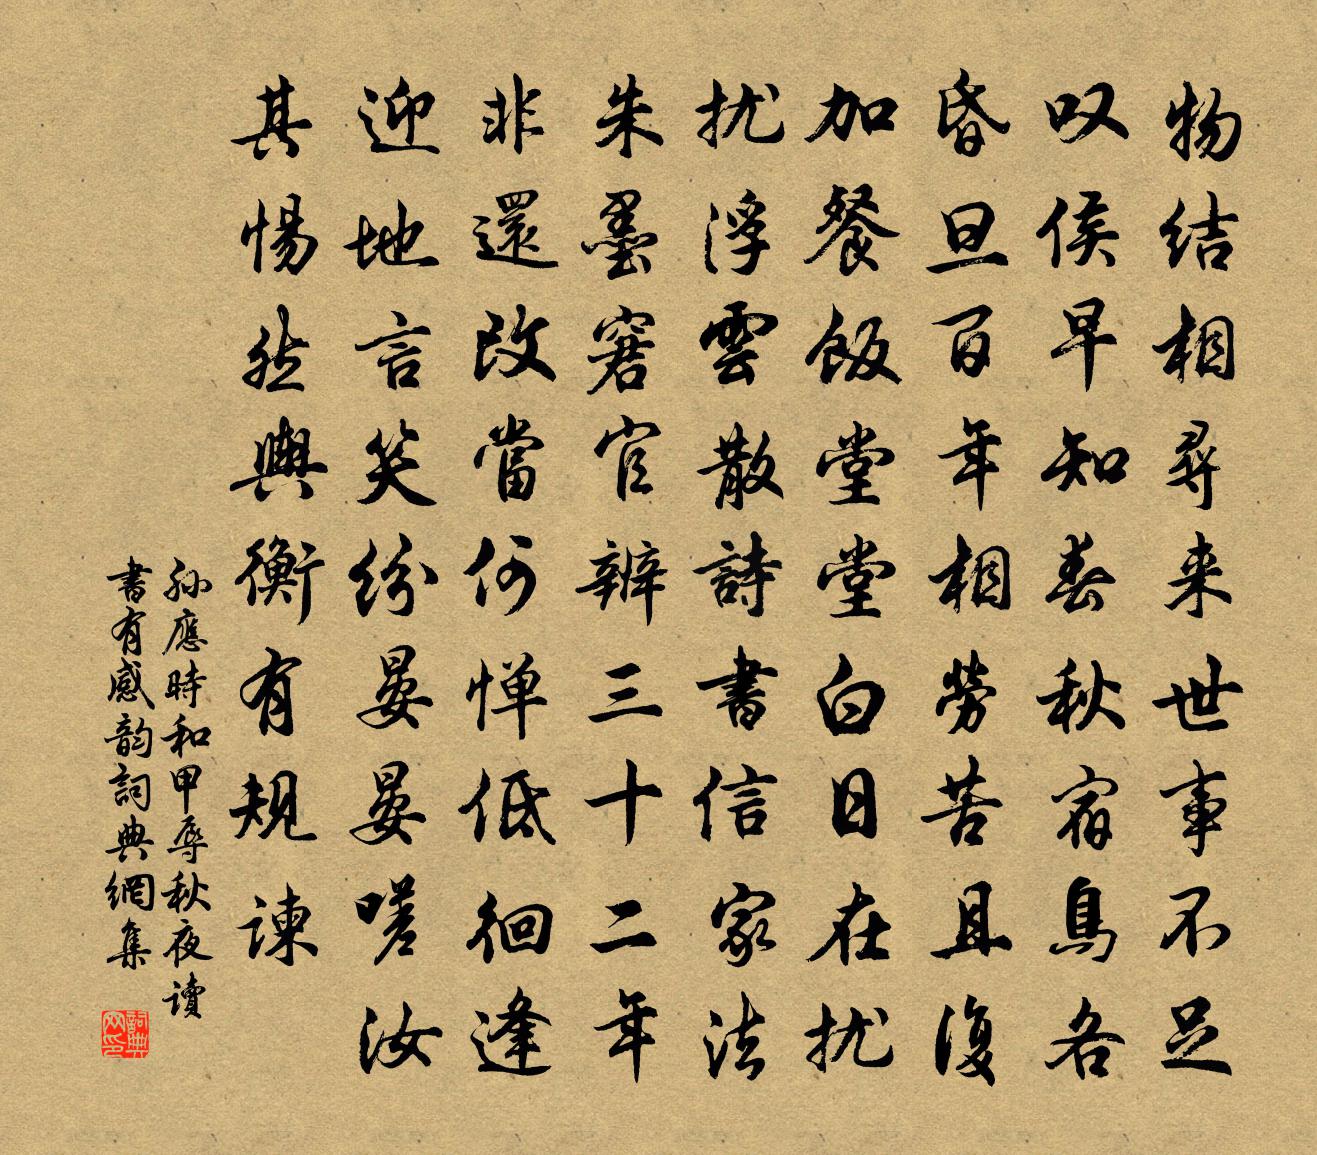 物结相尋来世事不足
叹侯早知春秋宿鳥各
昏旦百年相勞苦且復
加餐飯堂堂白日在扰
扰浮雲散詩書信家法
朱墨窘官辨三十二年
非還改當何惮低徊逢
迎地言笑纷晏晏嗟汝
其惕然輿衡有規諫
孙應時和甲辱秋夜讀
書有感韵詞典網集
詞典网印